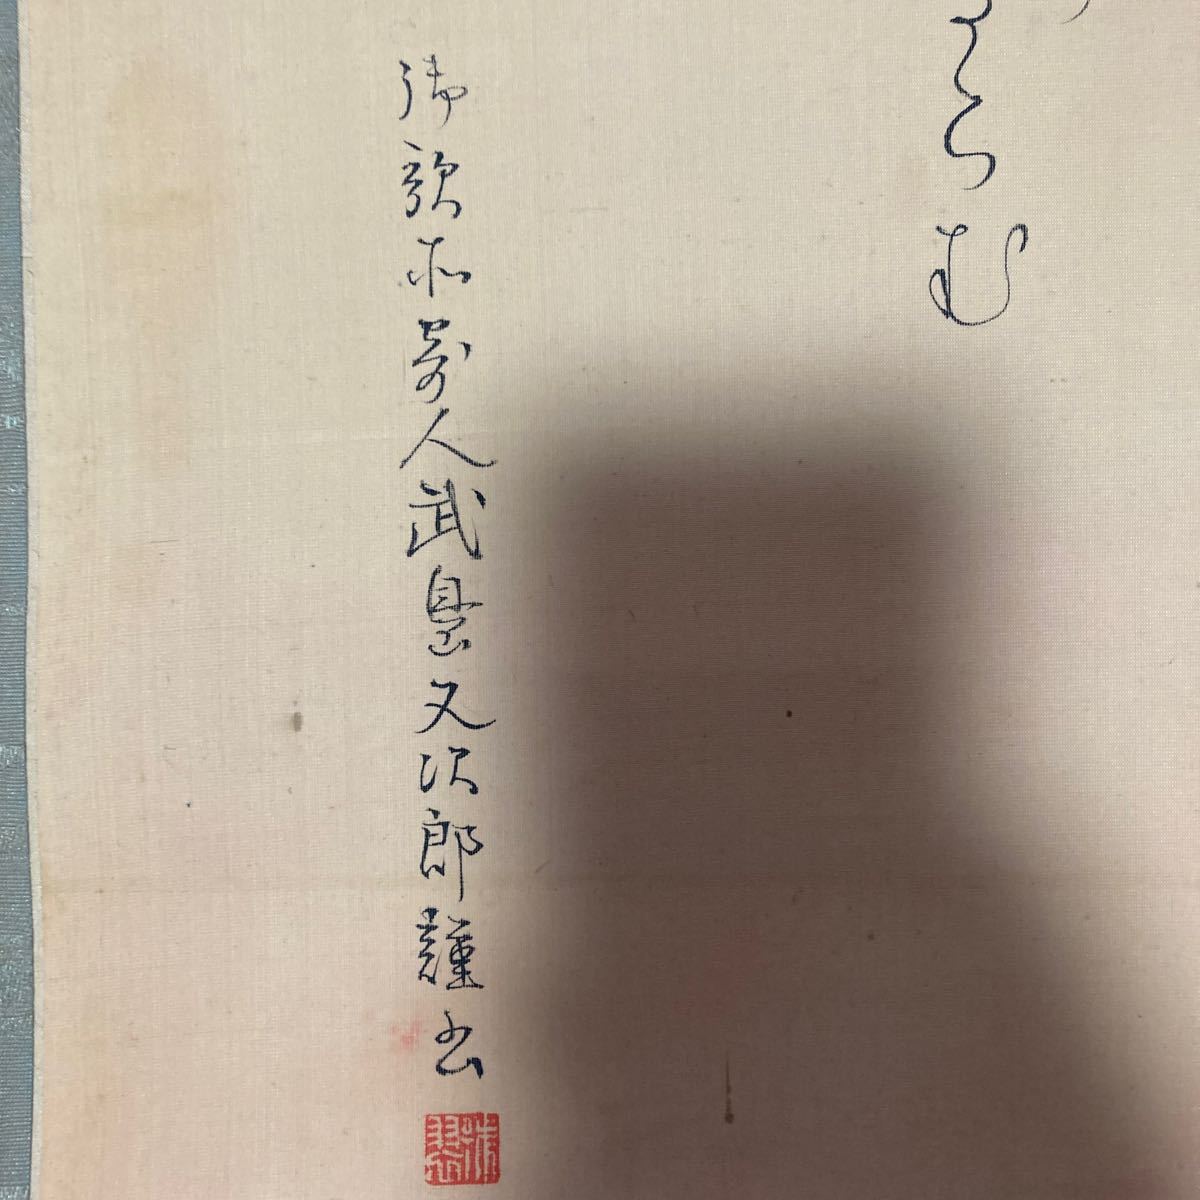 らむ
御歌所寄人武島又次郎謹書